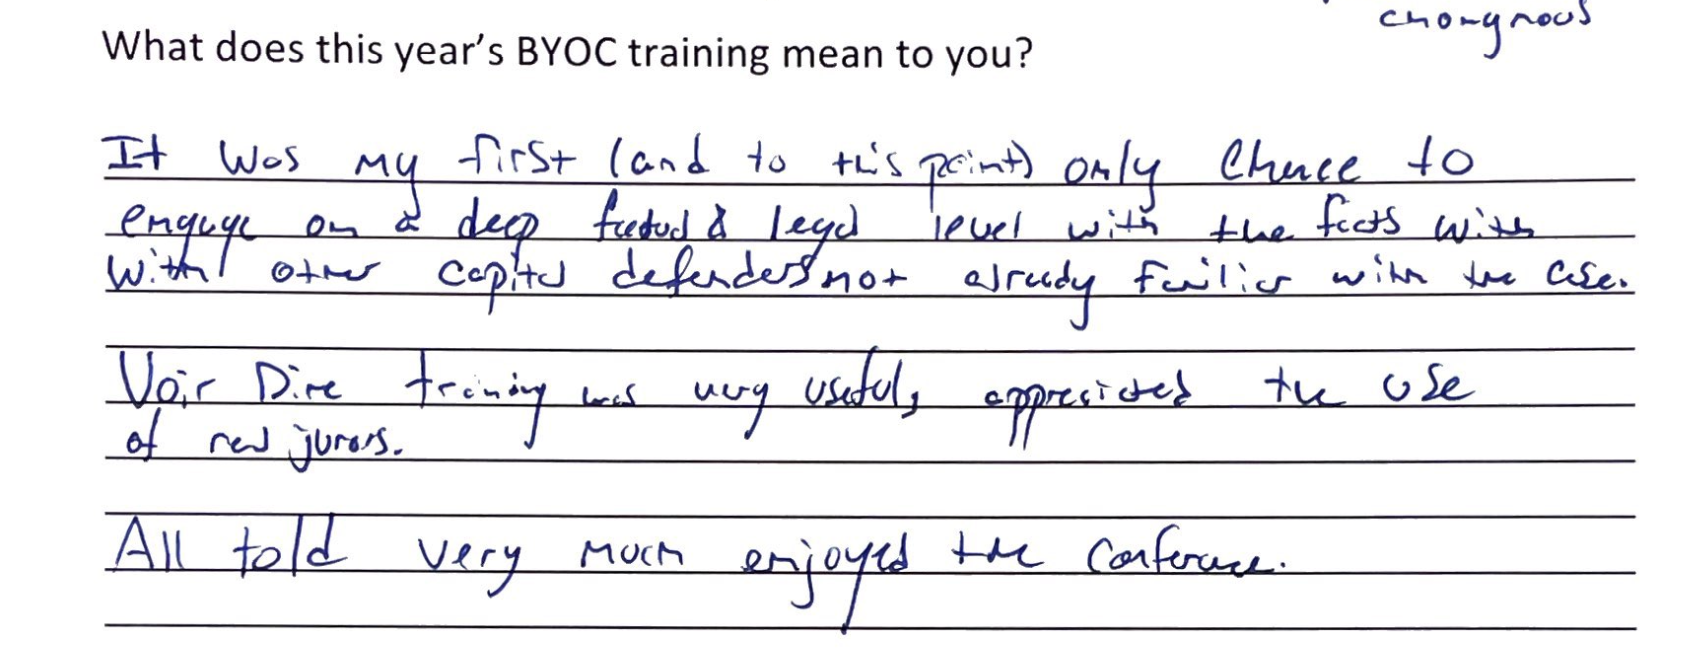 chongnous
What does this year's BYOC training mean to you?
It was my first (and to this point) only Chance to
engage on a deep factual & legal level with the facts with
with other capital defenders not already familiar with the case.
Voir Dire training was very useful, appreciated the use
of real jurors.
All told very much enjoyed the Conference.